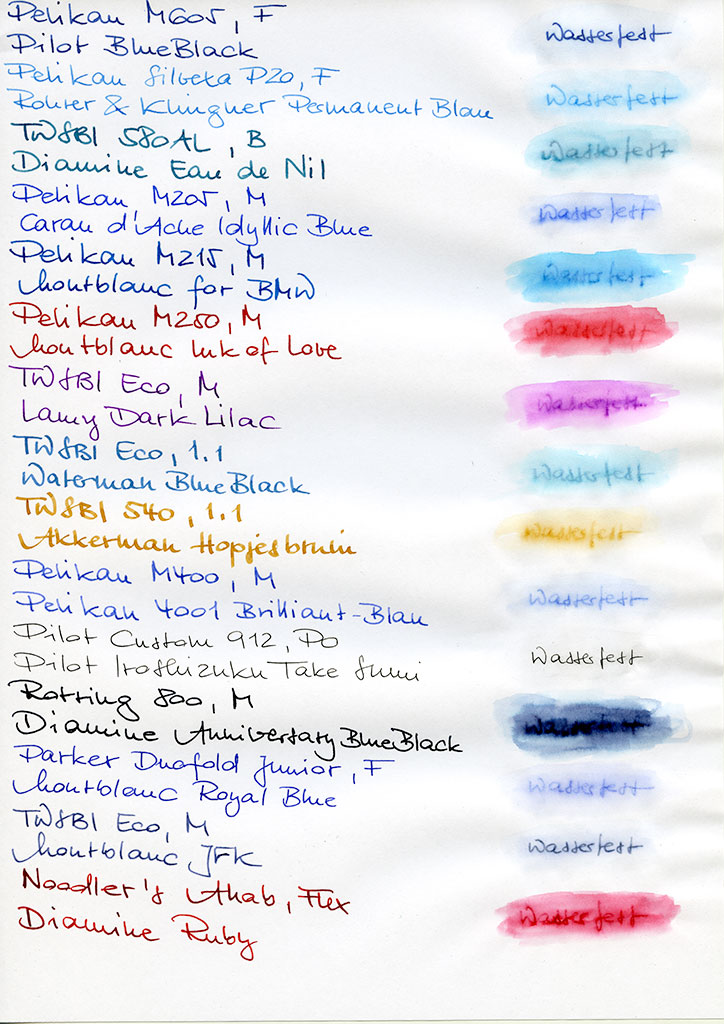 Pelikan M605, F
Wasserfest
Pilot BlueBlack
Pelikan Silvexa P20, F
Wasserfest
Rohrer & Klingner Permanent Blau
TWSBI 580AL, B
Wasserfest
Diamine Eau de Nil
Pelikan M205, M
Wasserfest
Caran d'Ache Idyllic Blue
Pelikan M215, M
Wasserfest
Montblanc for BMW
Pelikan M250, M
Wasserfest
Montblanc Ink of Love
TWSBI Eco, M
Wasserfest
Lamy Dark Lilac
TWSBI Eco, 1.1
Wasserfest
Waterman BlueBlack
TWSBI 540, 1.1
Wasserfest
Akkerman Hopjesbruin
Pelikan M400, M
Wasserfest
Pelikan 4001 Brilliant-Blau
Pilot Custom 912, PO
Wasserfest
Pilot Iroshizuku Take Sumi
Rotring 800, M
Wasserfest
Diamine Anniversary BlueBlack
Parker Duofold Junior, F
Wasserfest
Montblanc Royal Blue
TWSBI Eco, M
Wasserfest
Montblanc JFK
Noodler's Ahab, Flex
Wasserfest
Diamine Ruby